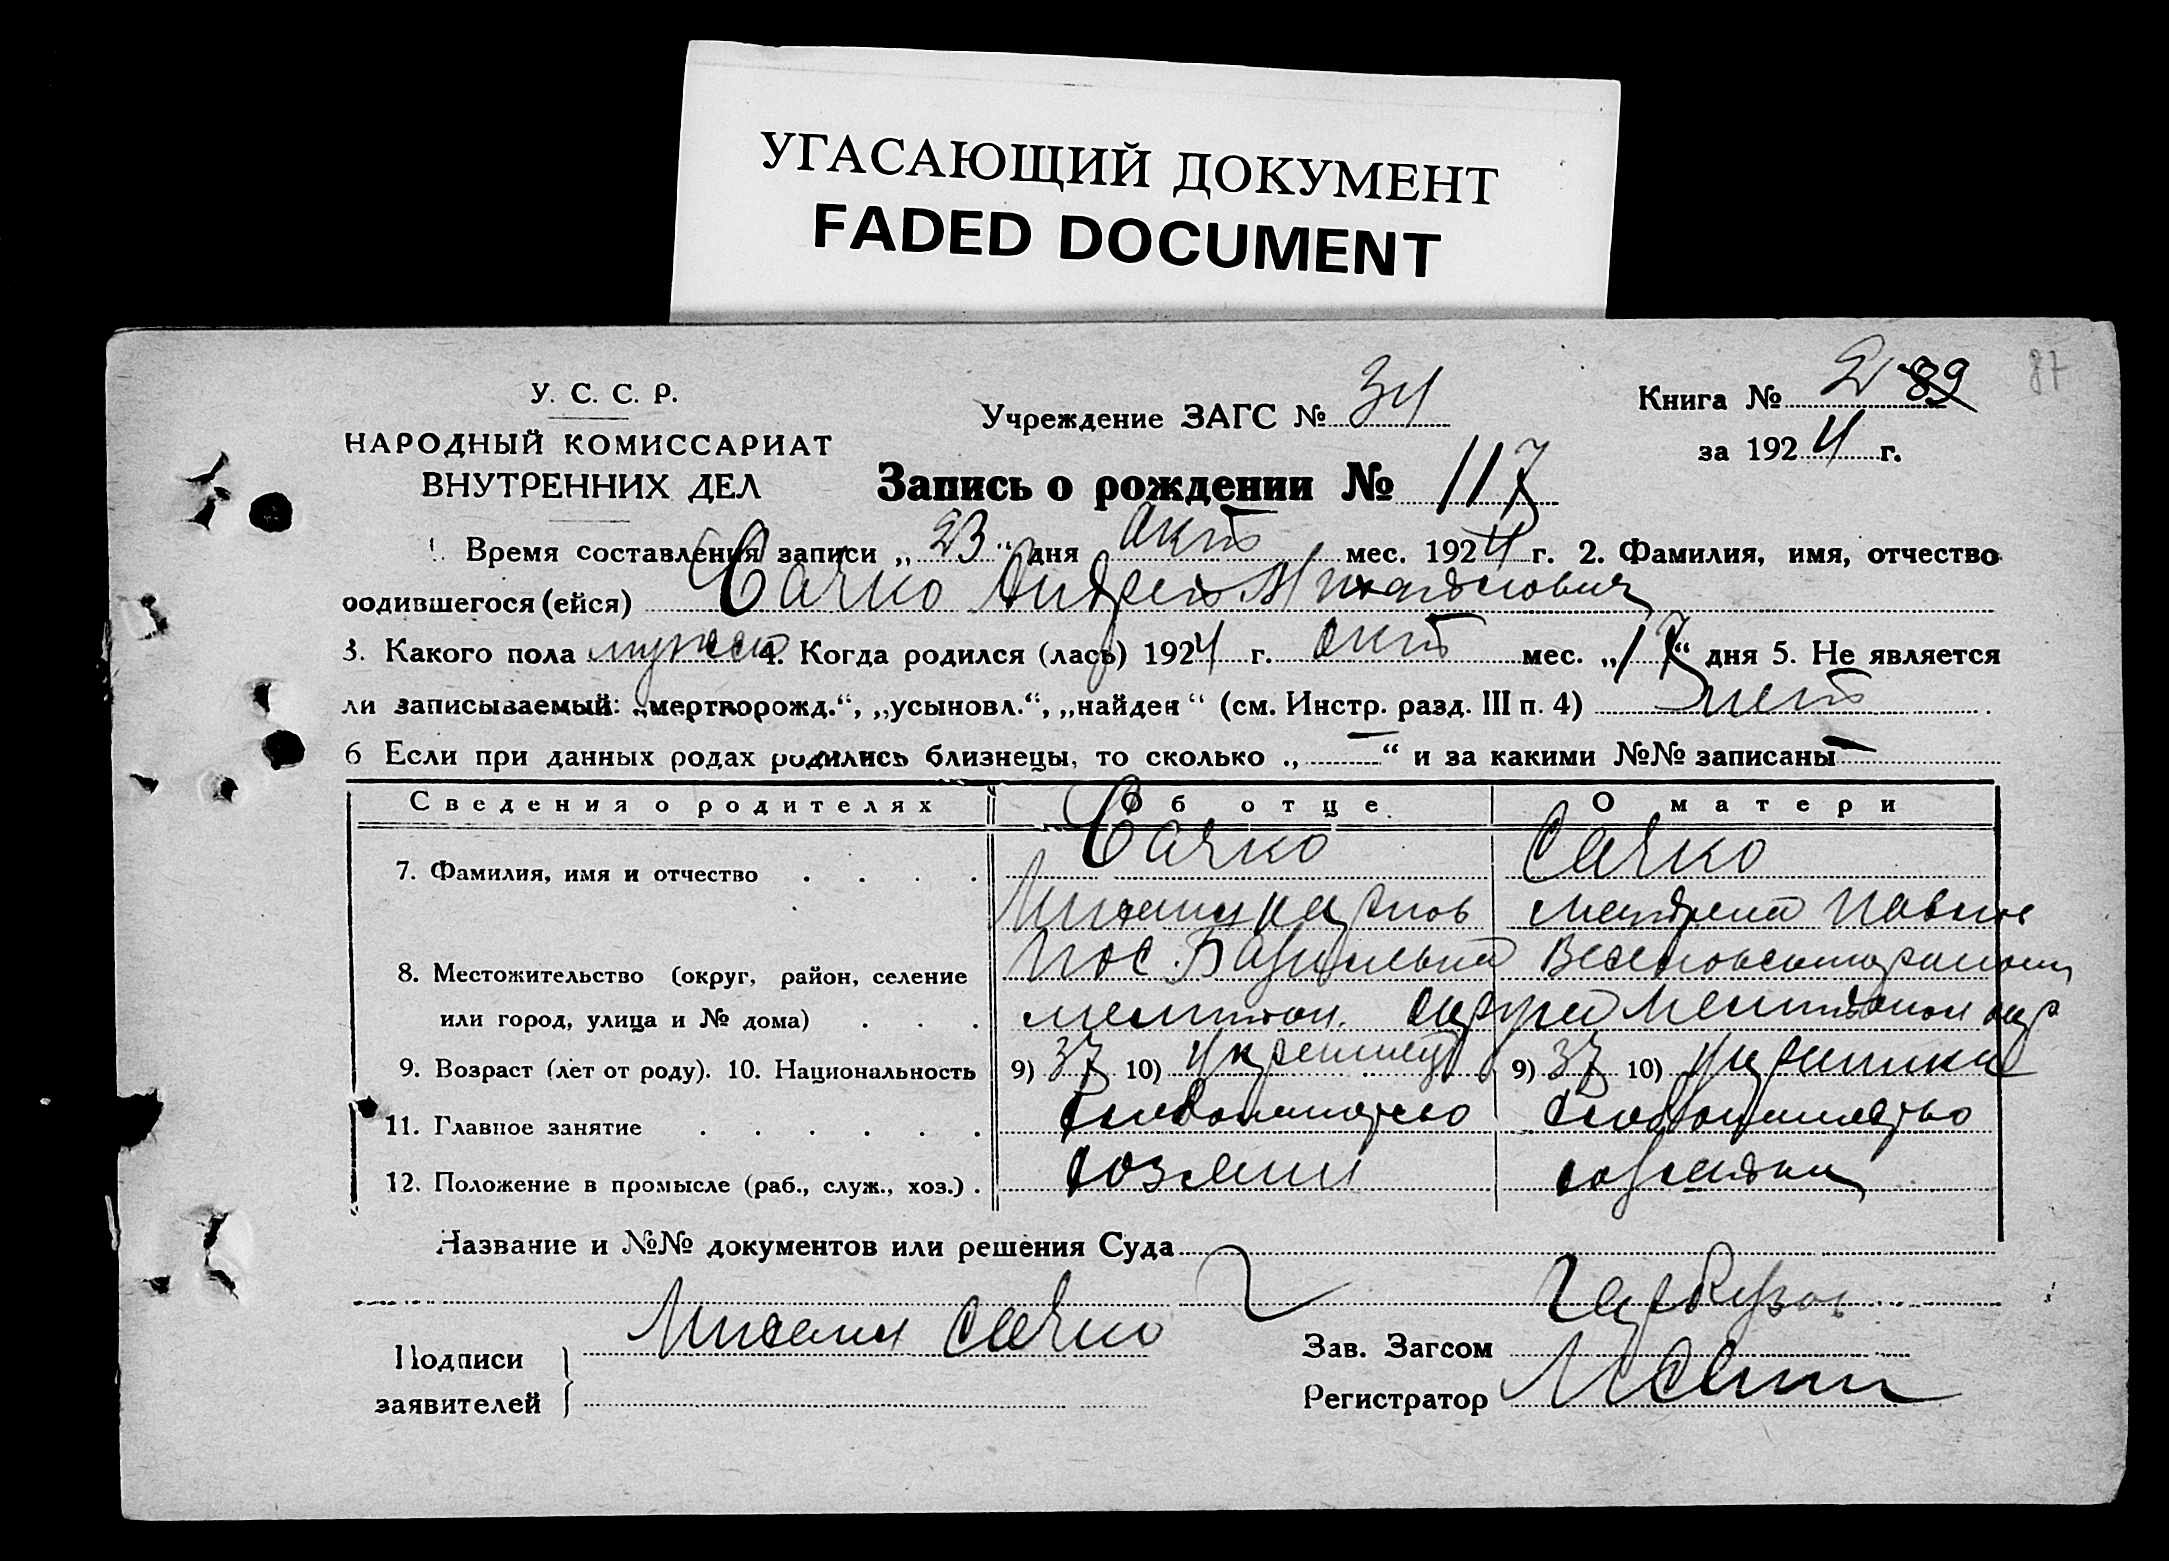 УГАСАЮЩИЙ ДОКУМЕНТ
FADED DOCUMENT
У. С. С. Р.
НАРОДНЫЙ КОМИССАРИАТ
ВНУТРЕННИХ ДЕЛ
Учреждение ЗАГС № 34
Книга № 2 89 87
за 1924 г.
Запись о рождении № 117
1. Время составления записи „23“ дня Окт мес. 1924 г. 2. Фамилия, имя, отчество
родившегося (ейся) Сачко Андрей Михайлович
3. Какого пола мужско 4. Когда родился (лась) 1924 г. окт мес. „17“ дня 5. Не является
ли записываемый: „мертворожд.“, „усыновл.“, „найден“ (см. Инстр. разд. III п. 4) нет
6 Если при данных родах родились близнецы, то сколько „—“ и за какими №№ записаны —
Сведения о родителях Об отце О матери
7. Фамилия, имя и отчество Сачко Сачко
Михаил Павлов
8. Местожительство (округ, район, селение пос.
или город, улица и № дома) округа
9. Возраст (лет от роду). 10. Национальность 9) 37 10) Украинец 9) 37 10) Украинка
11. Главное занятие хлебопашество хлебопашество
12. Положение в промысле (раб., служ., хоз.) хозяин хозяйка
Название и №№ документов или решения Суда
Подписи Михаил Сачко
заявителей
Зав. Загсом
Регистратор